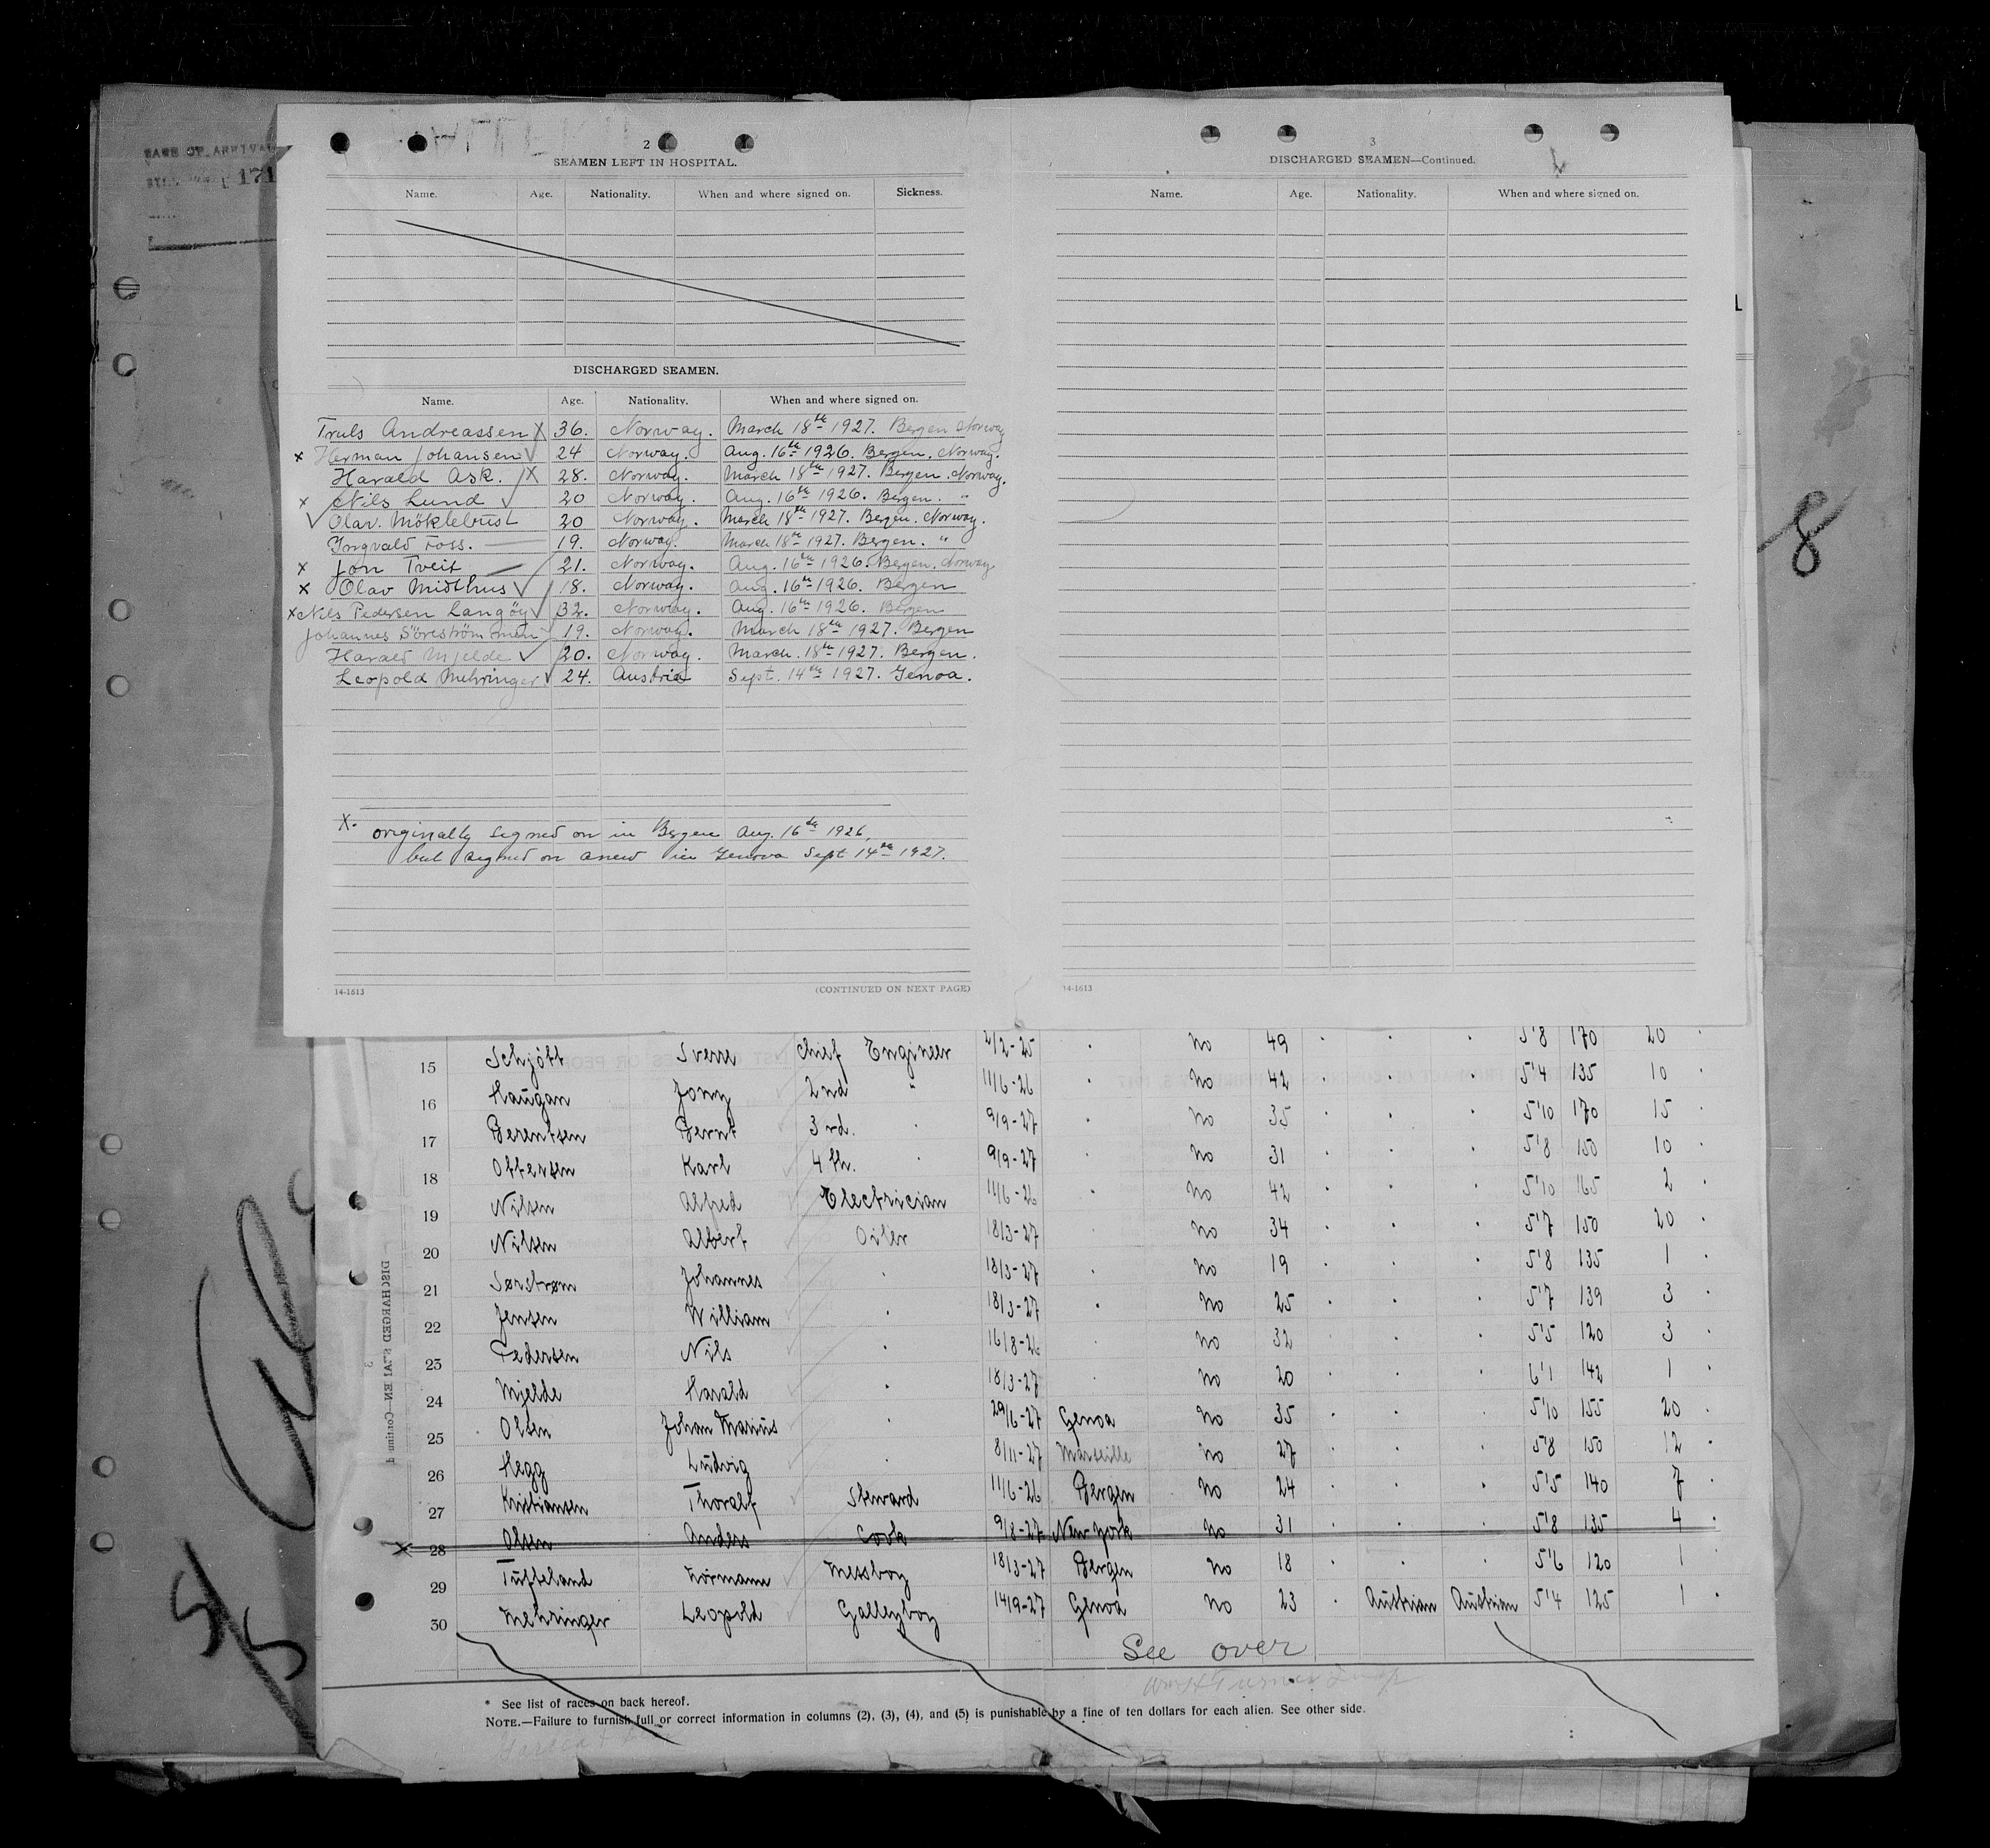 171
2
SEAMEN LEFT IN HOSPITAL.
Name. Age. Nationality. When and where signed on. Sickness.
DISCHARGED SEAMEN.
Name. Age. Nationality. When and where signed on.
Truls Andreassen X 36. Norway. March 18th 1927. Bergen Norway
x Herman Johansen √ 24 Norway. Aug. 16th 1926. Bergen. Norway.
Harald Ask. X 28. Norway. March 18th 1927. Bergen. Norway.
x Nils Lund √ 20 Norway. Aug. 16th 1926. Bergen. "
√ Olav. Möklebust 20 Norway. March 18th 1927. Bergen. Norway.
Ingvald Foss. 19. Norway. March 18th 1927. Bergen. "
x Jon Tveit 21. Norway. Aug. 16th 1926. Bergen. Norway
x Olav Midthus √ 18. Norway. Aug. 16th 1926. Bergen
x Nils Pedersen Langöy √ 32. Norway. Aug. 16th 1926. Bergen
Johannes Söreström 19. Norway. March 18th 1927. Bergen
Harald Mjelde √ 20. Norway. March. 18th 1927. Bergen.
Leopold Mehringer √ 24. Austria Sept. 14th 1927. Genoa.
X. originally signed on in Bergen Aug. 16th 1926,
but signed on anew in Genova Sept 14th 1927.
14-1613 (CONTINUED ON NEXT PAGE)
3
DISCHARGED SEAMEN—Continued.
Name. Age. Nationality. When and where signed on.
14-1613
8
15 Schjött Sverre Chief Engineer 2/2-25 No 49 5'8 170 20
16 Haugan Jony 2nd " 11/6-26 No 42 5'4 135 10
17 Berentsen Bernt 3rd. 9/9-27 No 35 5'10 170 15
18 Ottersen Karl 4th. 9/9-27 No 31 5'8 150 10
19 Nilsen Alfred Electrician 11/6-26 No 42 5'10 165 2
20 Nilsen Albert Oiler 18/3-27 No 34 5'7 150 20
21 Sørstrøm Johannes 18/3-27 No 19 5'8 135 1
22 Jensen William 18/3-27 No 25 5'7 139 3
23 Pedersen Nils 16/8-26 No 32 5'5 120 3
24 Mjelde Harald 18/3-27 No 20 6'1 142 1
25 Olsen Johan Marius 29/6-27 Genoa No 35 5'10 155 20
26 Hegg Ludvig 8/11-27 Marseille No 27 5'8 150 12
27 Kristiansen Thoralf Steward 11/6-26 Bergen No 24 5'5 140 7
x 28 Olsen Anders Cook 9/8-27 New York No 31 5'8 135 4
29 Tufteland Normann Messboy 18/3-27 Bergen No 18 5'6 120 1
30 Mehringer Leopold Galleyboy 14/9-27 Genoa No 23 Austrian Austrian 5'4 125 1
See over
* See list of races on back hereof.
NOTE.—Failure to furnish full or correct information in columns (2), (3), (4), and (5) is punishable by a fine of ten dollars for each alien. See other side.